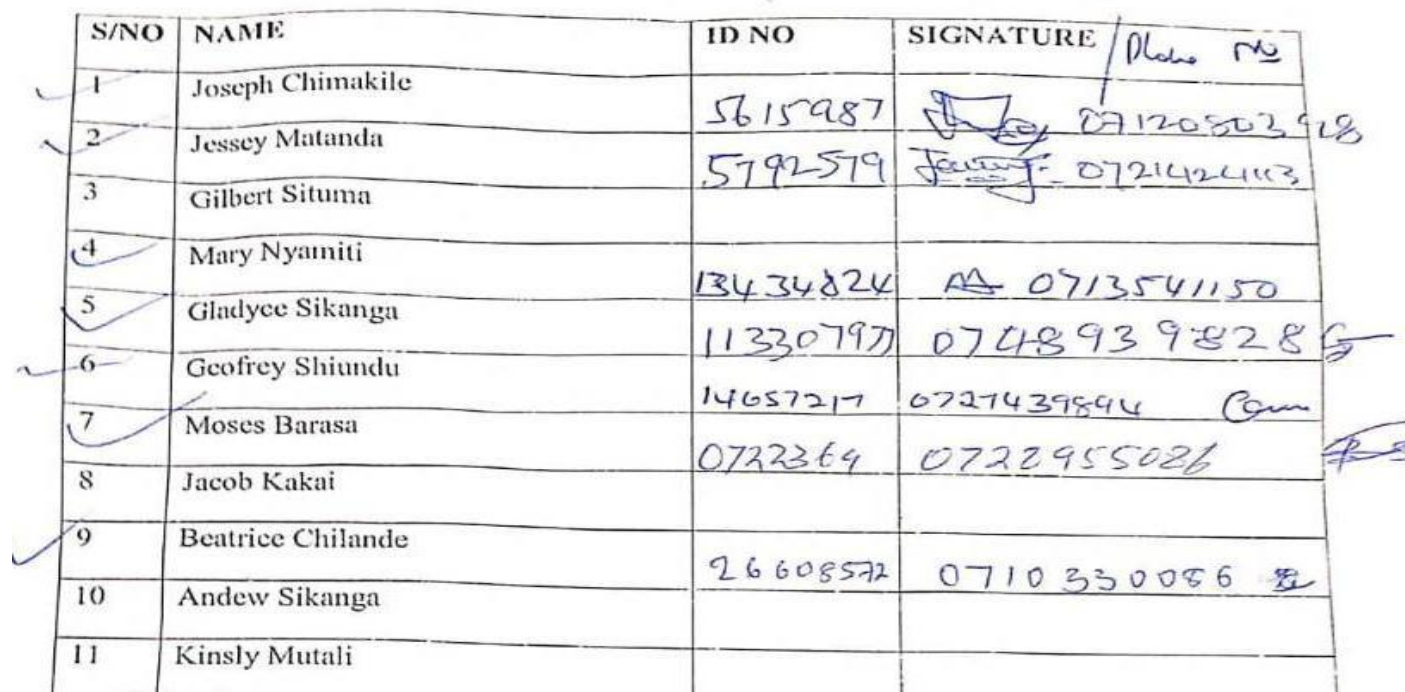 S/NO NAME ID NO SIGNATURE / Phone No
1 Joseph Chimakile 5615987
2 Jessey Matanda 5792579
3 Gilbert Situma
4 Mary Nyamiti 13434824 0713541150
5 Gladyce Sikanga 0748939828
6 Geofrey Shiundu 14657217 0727439894
7 Moses Barasa 0722955086
8 Jacob Kakai
9 Beatrice Chilande 26608572 0710330086
10 Andew Sikanga
11 Kinsly Mutali